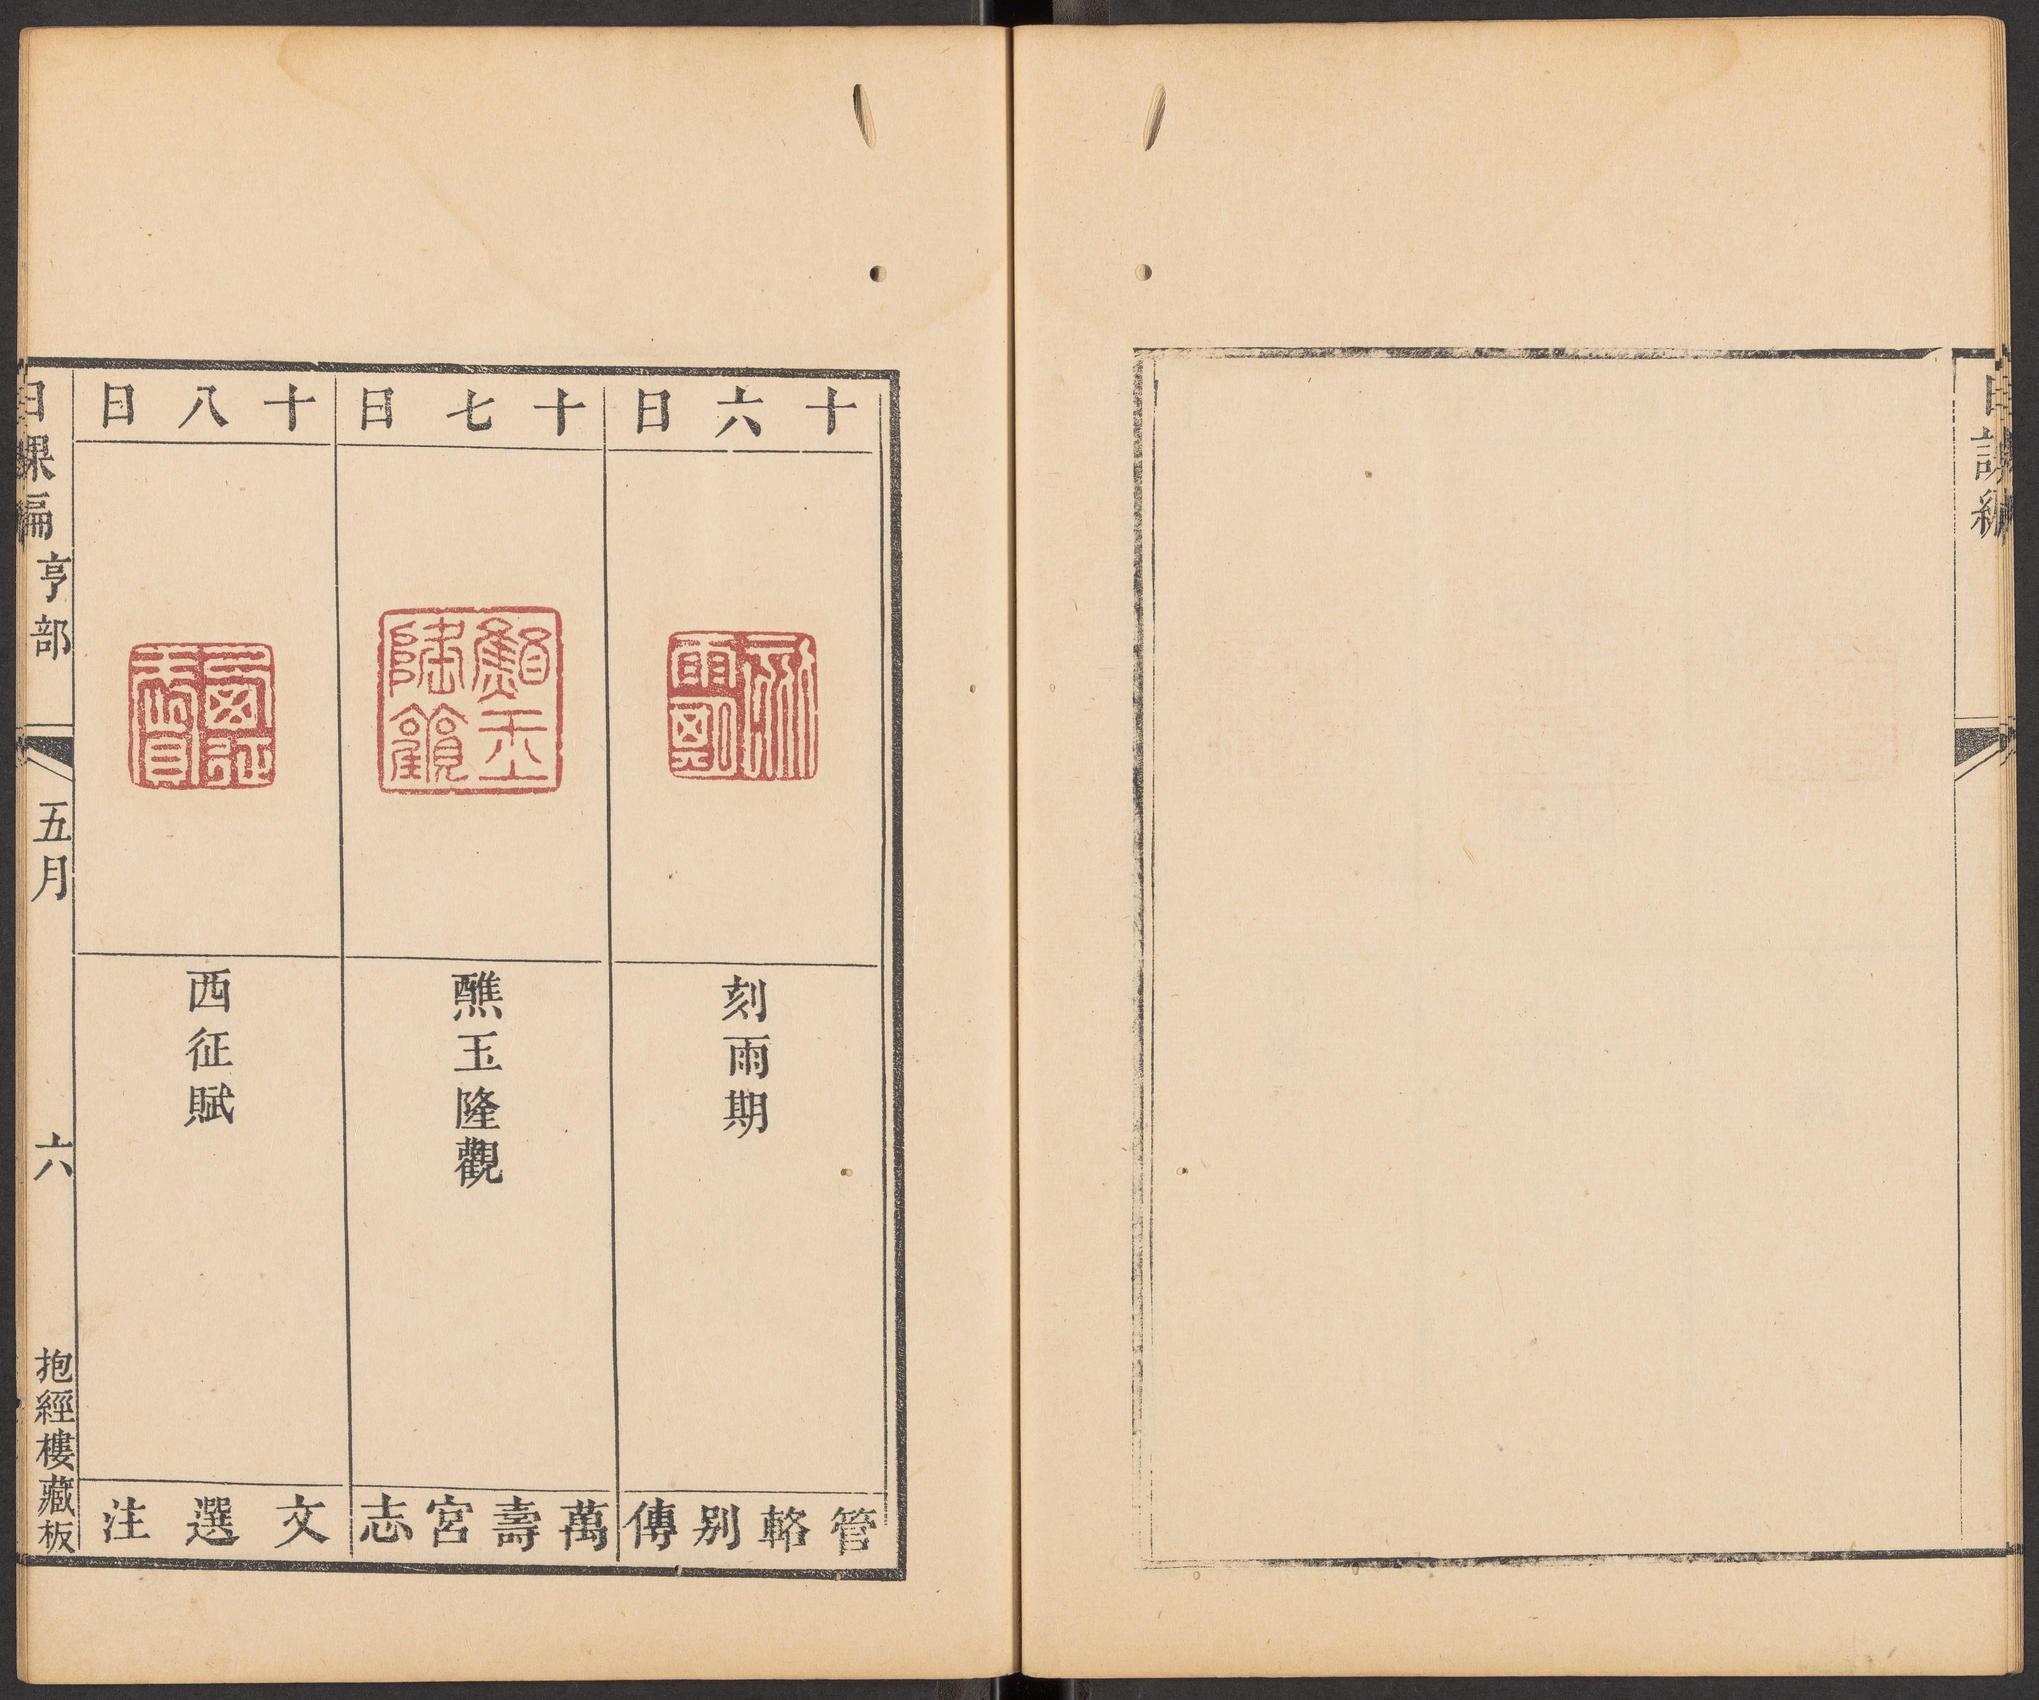 日課編
十六日
刻雨期
刻雨期
管輅別傳
十七日
醮玉隆觀
醮玉隆觀
萬壽宮志
十八日
西征賦
西征賦
文選注
日課編 亨部
五月
六
抱經樓藏板